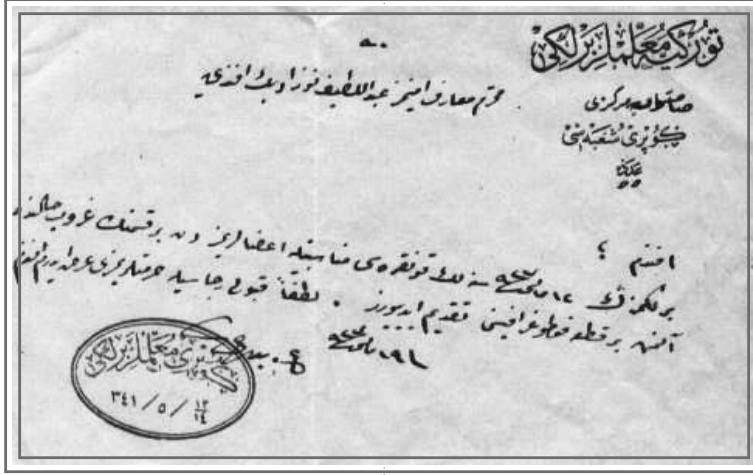 توركیه معلملر برلكی
مركزی
كوپری شعبه‌سی
عدد
٥٥
محترم معارف امینمز عبداللطیف نوزاد بك افندی‌یه
افندم ؛
برلكمزك ١٢ سنه‌لك قونغره‌سی مناسبتیله اعضالریمزدن بر قسمنك غروپ حالنده
آلنان بر قطعه فوطوغرافینی تقدیم ایدییورز . لطفاً قبولی رجاسیله حرمتلریمزی عرض ایدرم افندم
كوپری معلملر برلكی
٣٤١ / ٥ / ١٢
١٤